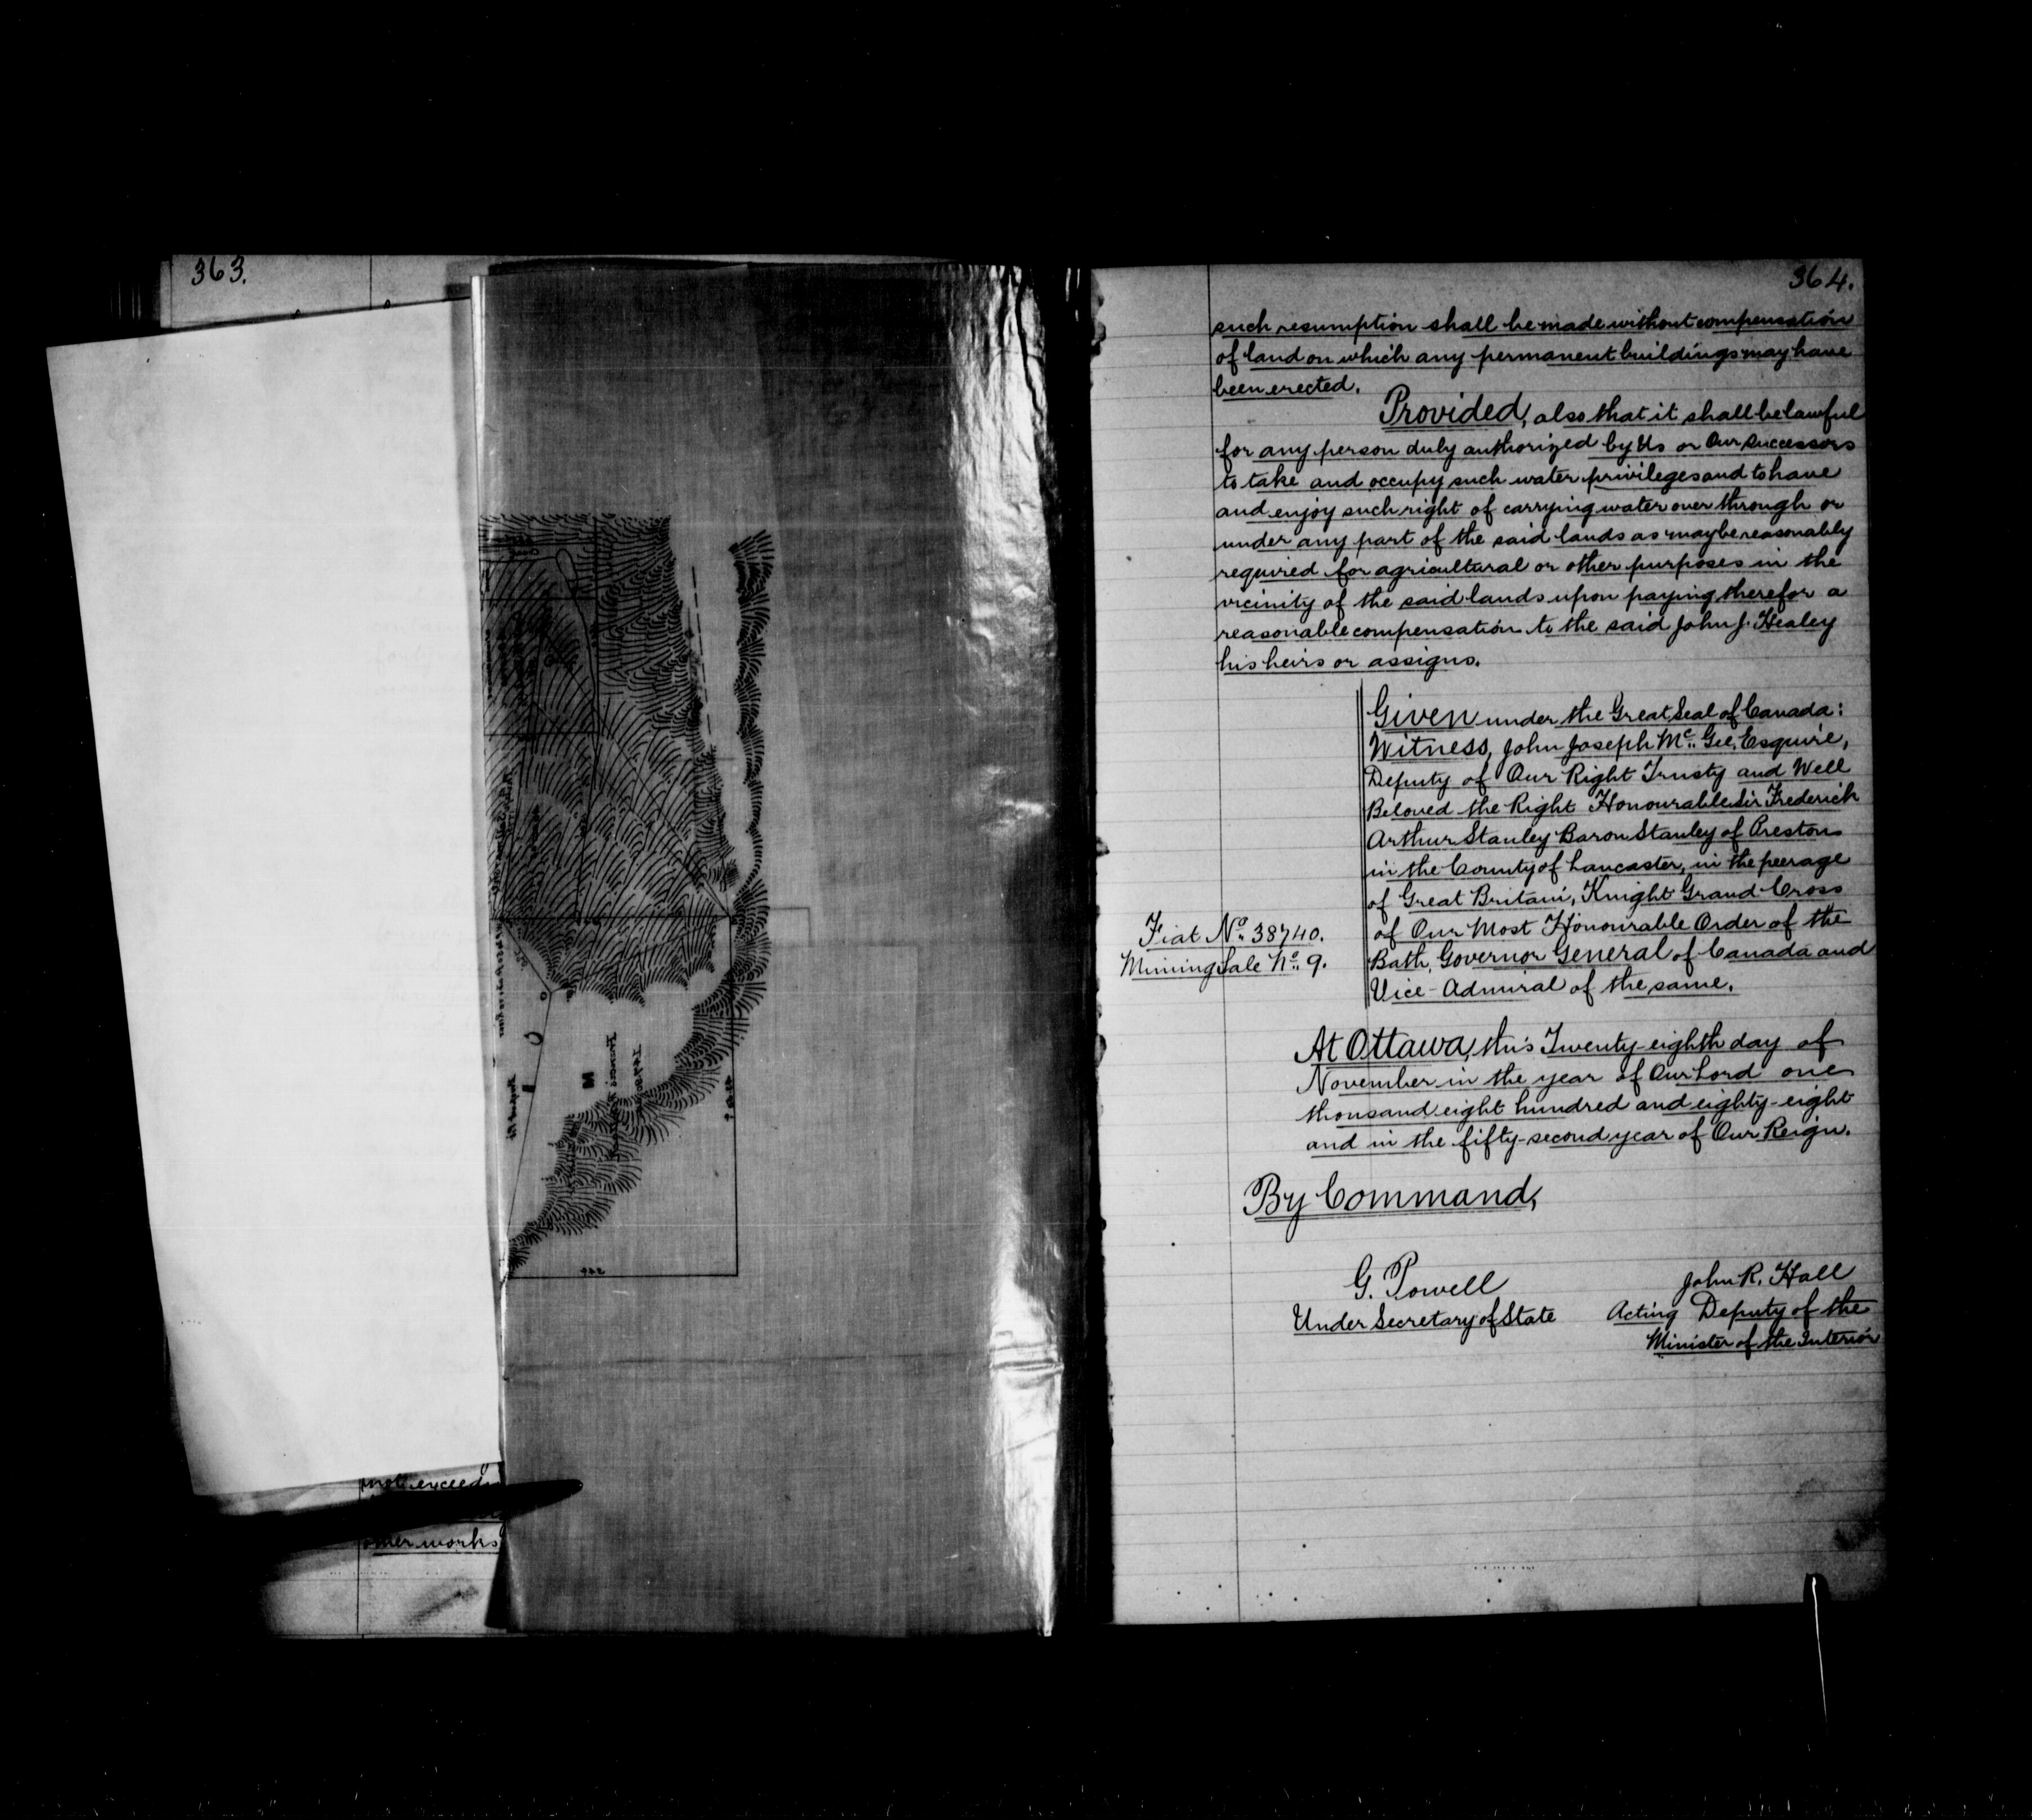 363.
not exceed
other works
364.
such resumption shall be made without compensation
of land on which any permanent buildings may have
been erected.
Provided, also that it shall be lawful
for any person duly authorized by Us or Our Successors
to take and occupy such water privileges and to have
and enjoy such right of carrying water over through or
under any part of the said lands as may be reasonably
required for agricultural or other purposes in the
vicinity of the said lands upon paying therefor a
reasonable compensation to the said John J. Healey
his heirs or assigns.
Given under the Great Seal of Canada:
Witness, John Joseph Mc. Gee, Esquire,
Deputy of Our Right Trusty and Well
Beloved the Right Honourable Sir Frederick
Arthur Stanley Baron Stanley of Preston
in the County of Lancaster, in the peerage
of Great Britain, Knight Grand Cross
of Our Most Honourable Order of the
Bath, Governor General of Canada and
Vice-Admiral of the same.
Fiat No. 38740.
Mining Sale No. 9.
At Ottawa, this Twenty-eighth day of
November in the year of Our Lord one
thousand eight hundred and eighty-eight
and in the fifty-second year of Our Reign.
By Command,
G. Powell
Under Secretary of State
John R. Hall
Acting Deputy of the
Minister of the Interior